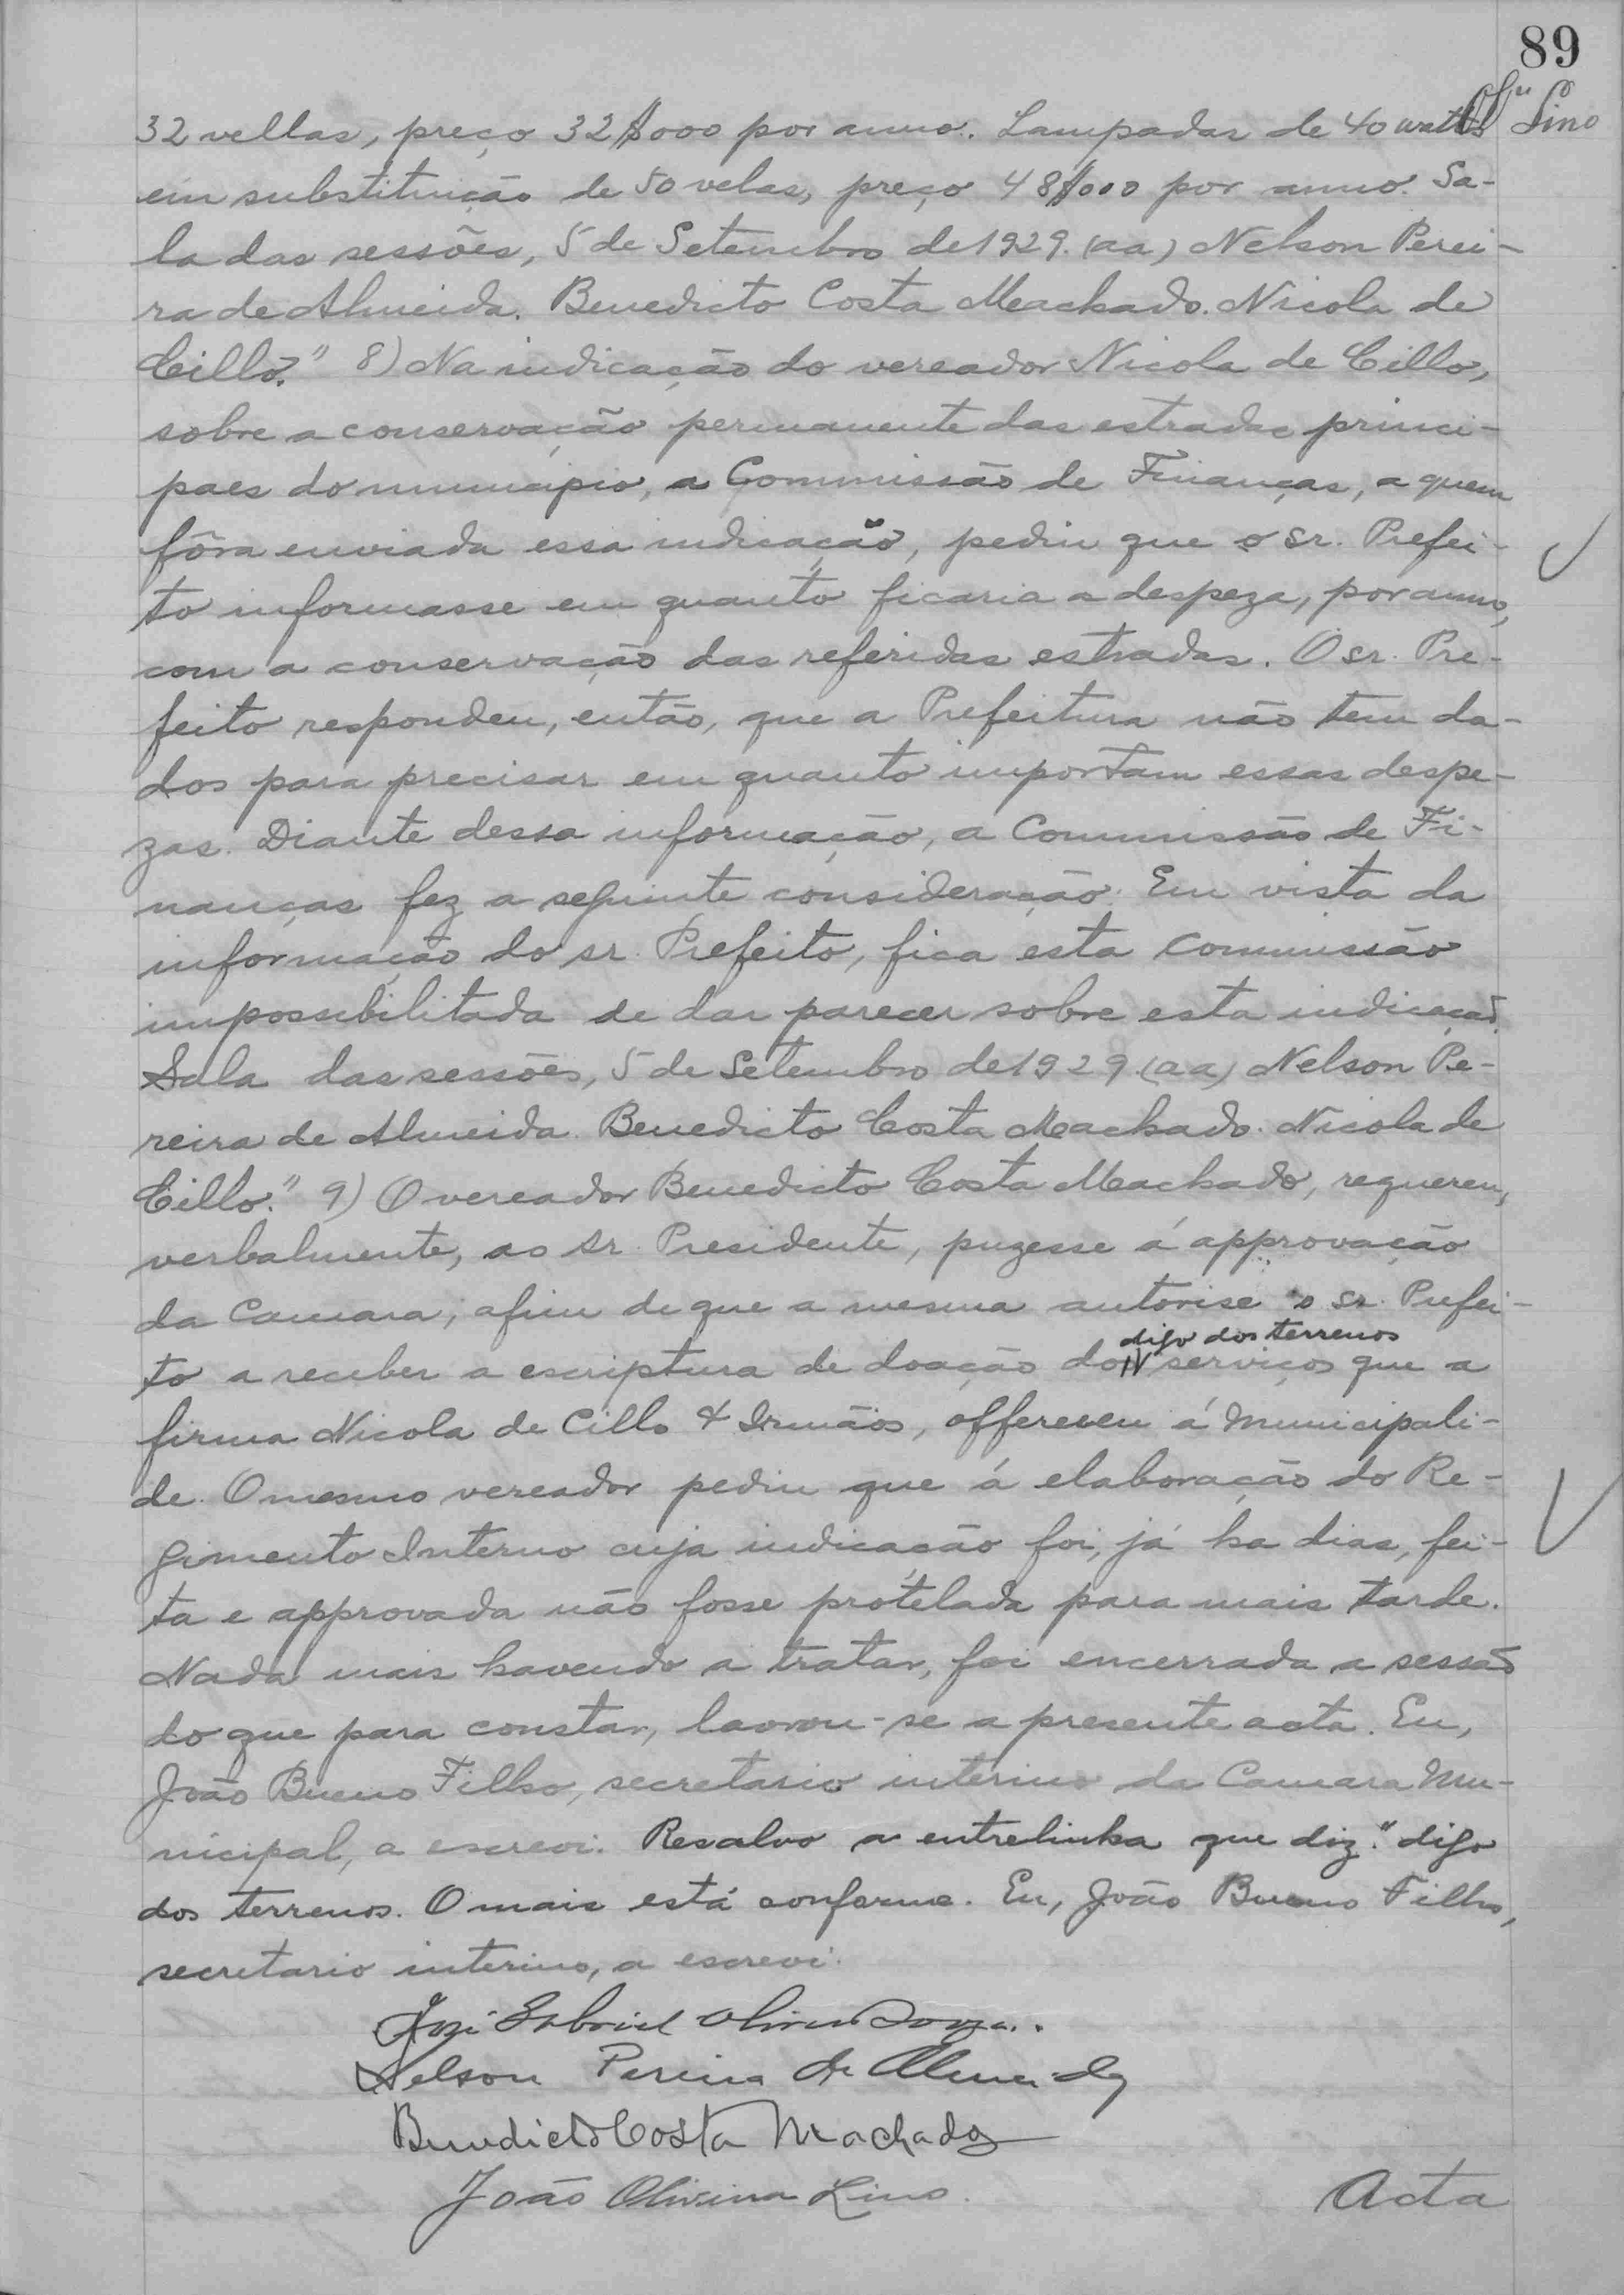 89
Lino
32 vellas, preço 32$000 por anno. Lampadas de 40 watts
em substituição de 50 velas, preço 48$000 por anno. Sa-
la das sessões, 5 de Setembro de 1929. (aa) Nelson Perei-
ra de Almeida. Benedicto Costa Machado. Nicola de
Cillo." 8) Na indicação do vereador Nicola de Cillo,
sobre a conservação permanente das estradas princi-
paes do municipio, a Commissão de Finanças, a quem
fôra enviada essa indicação, pediu que o sr. Prefei-
to informasse em quanto ficaria a despeza, por anno,
com a conservação das referidas estradas. O sr. Pre-
feito respondeu, então, que a Prefeitura não tem da-
dos para precisar em quanto importam essas despe-
zas. Diante dessa informação, a Commissão de Fi-
nanças fez a seguinte consideração: Em vista da
informação do sr. Prefeito, fica esta commissão
impossibilitada de dar parecer sobre esta indicação.
Sala das sessões, 5 de Setembro de 1929. (aa) Nelson Pe-
reira de Almeida. Benedicto Costa Machado. Nicola de
Cillo." 9) O vereador Benedicto Costa Machado, requereu,
verbalmente, ao sr. Presidente, puzesse á approvação
da Camara, afim de que a mesma autorise o sr. Prefei-
digo dos terrenos
to a receber a escriptura de doação dos serviços que a
firma Nicola de Cillo & Irmãos, offereceu á Municipali-
de. O mesmo vereador pediu que á elaboração do Re-
gimento Interno cuja indicação foi, já ha dias, fei-
ta e approvada não fosse protelada para mais tarde.
Nada mais havendo a tratar, foi encerrada a sessão
do que para constar, lavrou-se a presente acta. Eu,
João Bueno Filho, secretario interino da Camara Mu-
nicipal, a escrevi. Resalvo a entrelinha que diz: "digo
dos terrenos. O mais está conforme. Eu, João Bueno Filho,
secretario interino, a escrevi.
José Gabriel Oliveira Souza.
Nelson Pereira de Almeida
Benedicto Costa Machado
João Oliveira Lino.
Acta